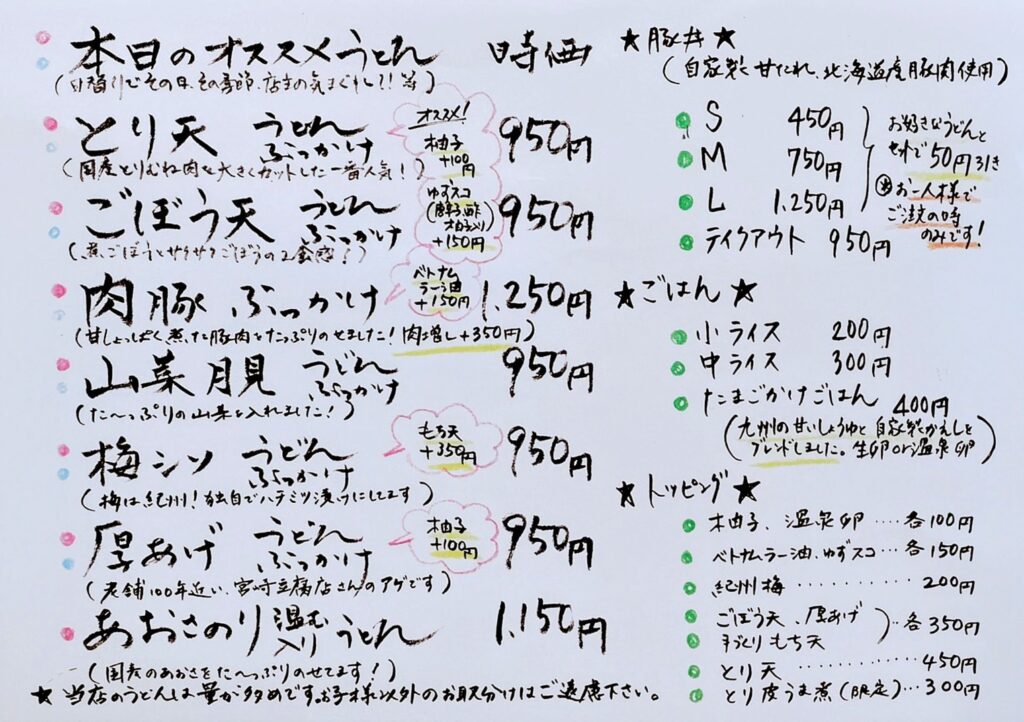 本日のオススメうどん 時価
(日替りでその日、その季節、店主の気まぐれ!!等)
とり天 うどん ぶっかけ 950円
オススメ! 柚子 +100円
(国産とりむね肉を大きくカットした一番人気!)
ごぼう天 うどん ぶっかけ 950円
ゆずスコ (唐辛子、酢 柚子入り) +150円
(煮ごぼうとサクサクごぼうの2食感♪)
肉豚 ぶっかけ 1,250円
ベトナム ラー油 +150円
(甘しょっぱく煮た豚肉をたっぷりのせました! 肉増し+350円)
山菜月見 うどん ぶっかけ 950円
(た〜っぷりの山菜を入れました!)
梅シソ うどん ぶっかけ 950円
もち天 +350円
(梅は紀州!独自でハチミツ漬けにしてます)
厚あげ うどん ぶっかけ 950円
柚子 +100円
(老舗100年近い、宮崎豆腐店さんのアゲです)
あおさのり 温む入り うどん 1,150円
(国産のあおさをた〜っぷりのせてます!)
★当店のうどんは量が多めです。お子様以外のお取分けはご遠慮下さい。
★豚丼★
(自家製甘たれ、北海道産豚肉使用)
S 450円
M 750円
L 1,250円
テイクアウト 950円
お好きなうどんと
セットで50円引き
※お一人様で
ご注文の時
のみです!
★ごはん★
小ライス 200円
中ライス 300円
たまごかけごはん 400円
(九州の甘いしょうゆと自家製かえしを
ブレンドしました。生卵or温泉卵)
★トッピング★
柚子、温泉卵‥‥各100円
ベトナムラー油、ゆずスコ‥各150円
紀州梅‥‥‥‥200円
ごぼう天、厚あげ
手づくりもち天 各350円
とり天‥‥‥‥450円
とり皮うま煮(限定)‥‥300円